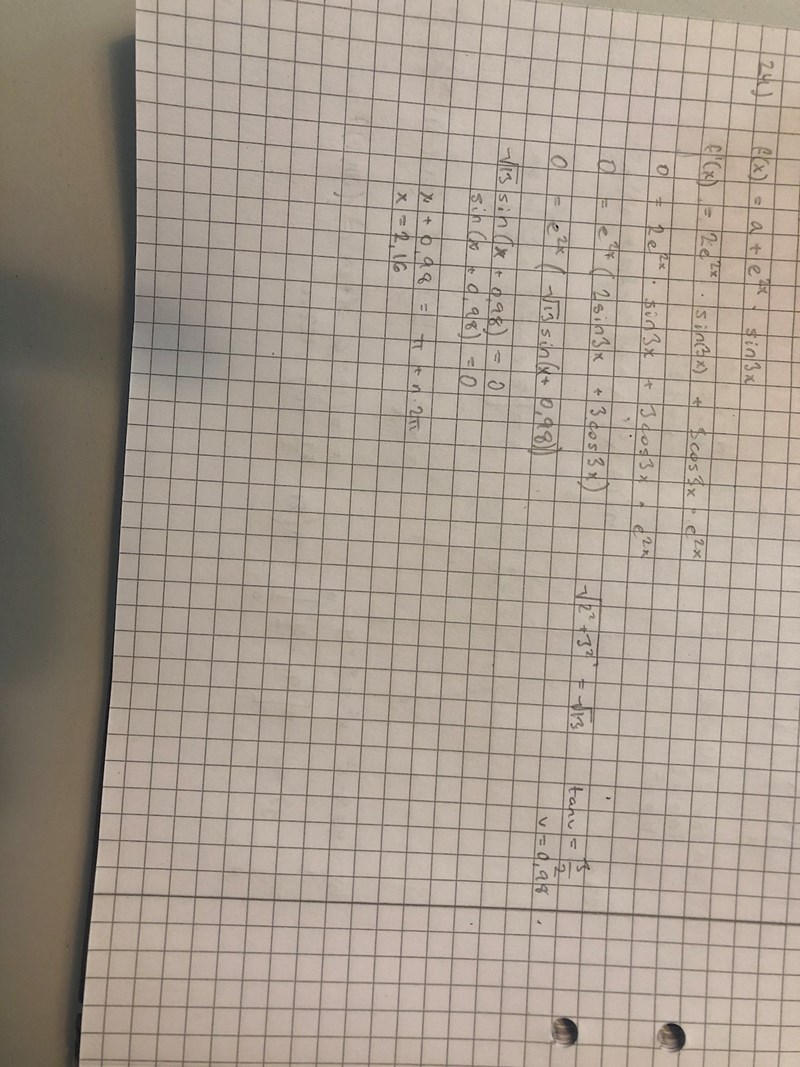 24)
f(x) = a + e^2x · sin3x
f'(x) = 2e^2x · sin(3x) + 3cos3x · e^2x
0 = 2e^2x · sin3x + 3cos3x · e^2x
0 = e^2x (2sin3x + 3cos3x)
√2² + 3² = √13
tanv = 3/2
v = 0,98
0 = e^2x (√13 sin(x + 0,98))
√13 sin(x + 0,98) = 0
sin(x + 0,98) = 0
x + 0,98 = π + n·2π
x = 2,16